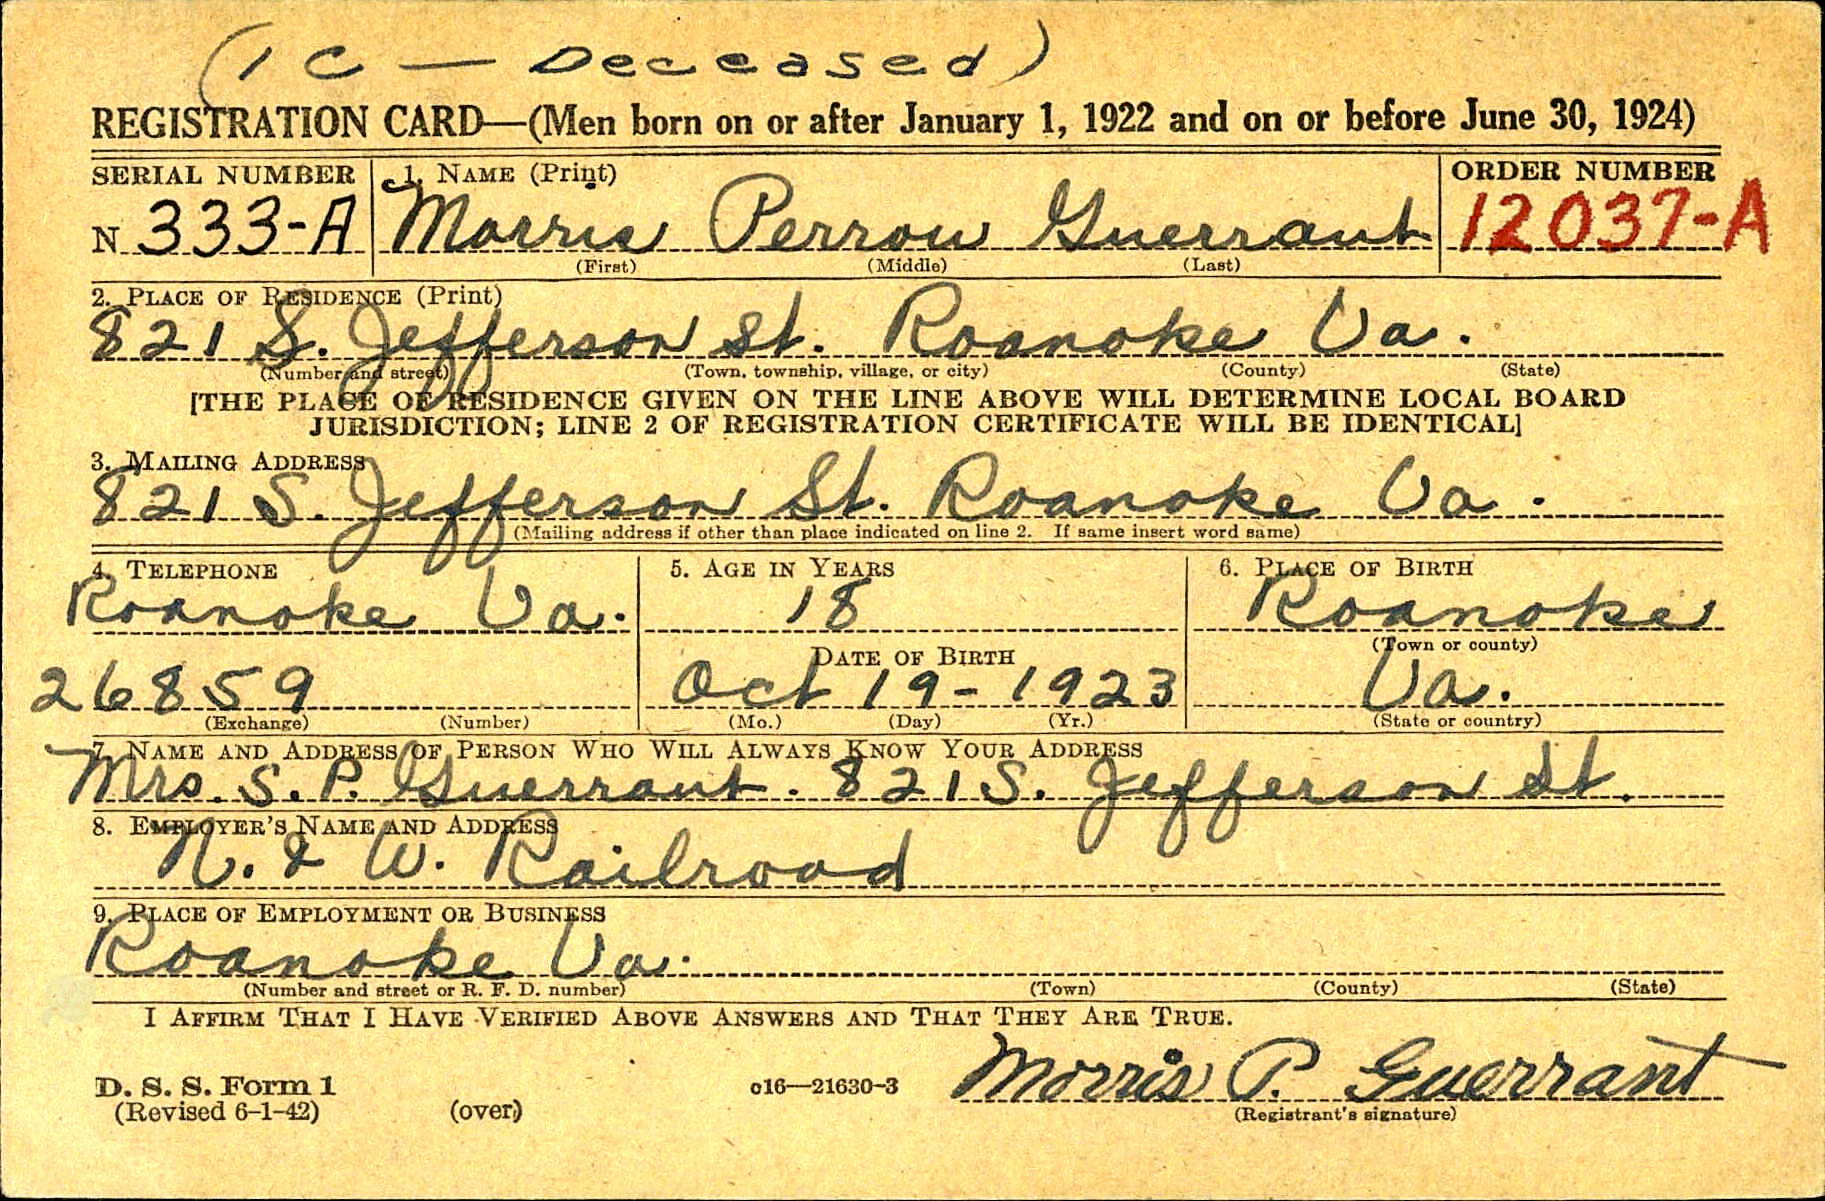 (1C — Deceased)
REGISTRATION CARD—(Men born on or after January 1, 1922 and on or before June 30, 1924)
SERIAL NUMBER
1. NAME (Print)
ORDER NUMBER
N 333-A
Morris Perrow Guerrant
12037-A
(First) (Middle) (Last)
2. PLACE OF RESIDENCE (Print)
821 S. Jefferson St. Roanoke Va.
(Number and street) (Town, township, village, or city) (County) (State)
[THE PLACE OF RESIDENCE GIVEN ON THE LINE ABOVE WILL DETERMINE LOCAL BOARD
JURISDICTION; LINE 2 OF REGISTRATION CERTIFICATE WILL BE IDENTICAL]
3. MAILING ADDRESS
821 S. Jefferson St. Roanoke Va.
(Mailing address if other than place indicated on line 2. If same insert word same)
4. TELEPHONE
Roanoke Va.
26859
(Exchange) (Number)
5. AGE IN YEARS
18
DATE OF BIRTH
Oct 19-1923
(Mo.) (Day) (Yr.)
6. PLACE OF BIRTH
Roanoke
(Town or county)
Va.
(State or country)
7. NAME AND ADDRESS OF PERSON WHO WILL ALWAYS KNOW YOUR ADDRESS
Mrs. S. P. Guerrant. 821 S. Jefferson St.
8. EMPLOYER'S NAME AND ADDRESS
N. & W. Railroad
9. PLACE OF EMPLOYMENT OR BUSINESS
Roanoke Va.
(Number and street or R. F. D. number) (Town) (County) (State)
I AFFIRM THAT I HAVE VERIFIED ABOVE ANSWERS AND THAT THEY ARE TRUE.
Morris P. Guerrant
(Registrant's signature)
D. S. S. Form 1
(Revised 6-1-42)
(over)
c16—21630-3